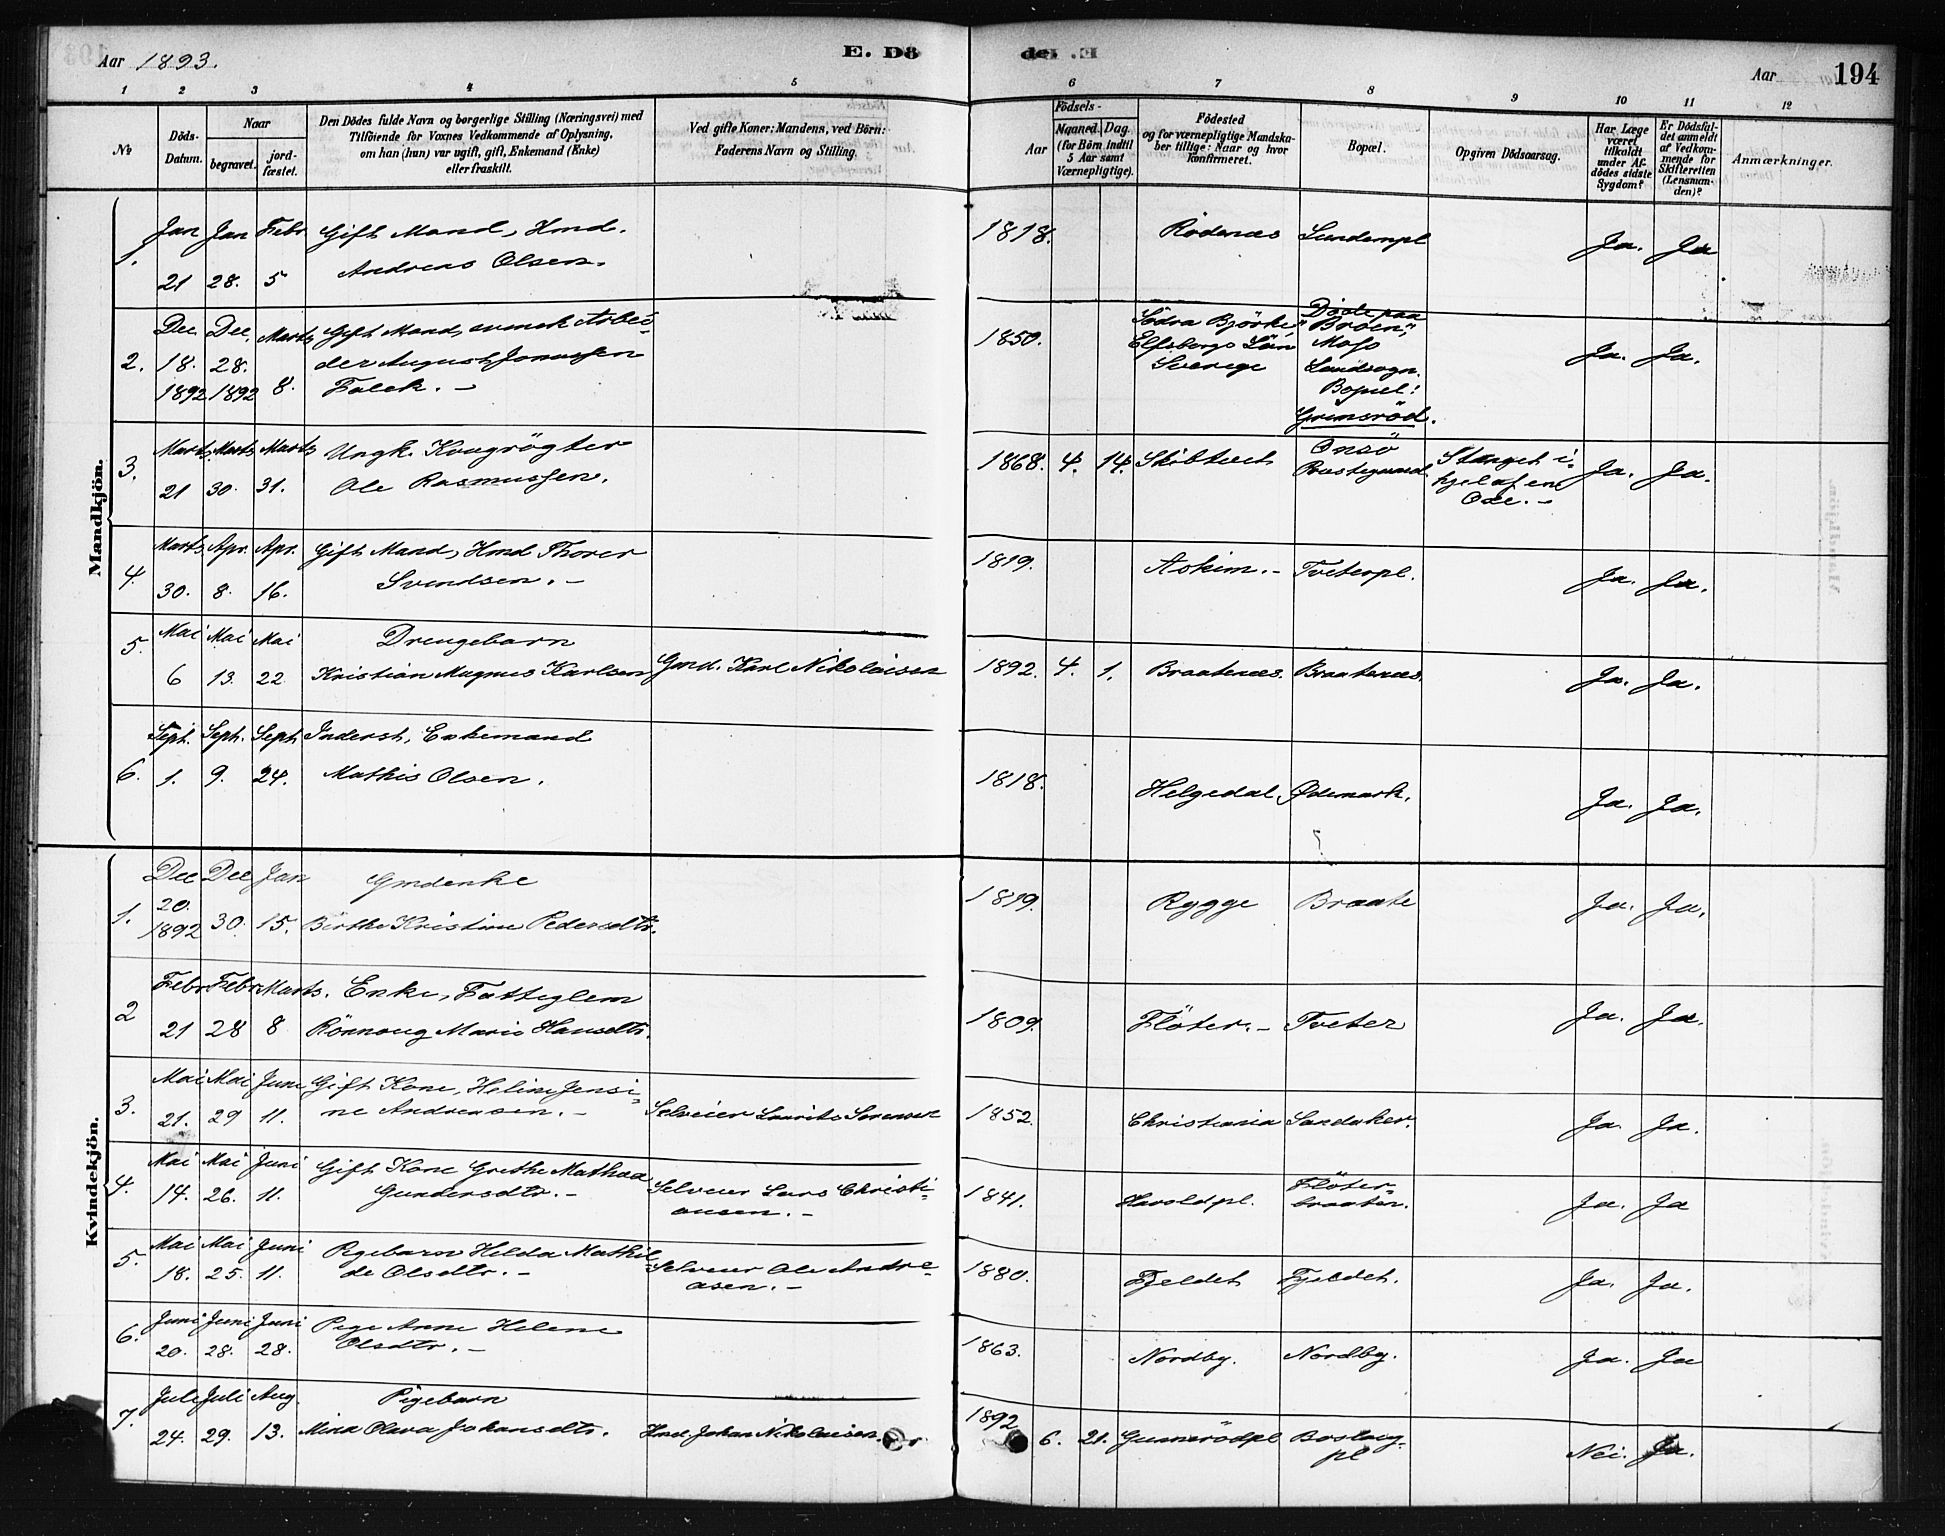 Aar 1893.
E. Dö
de. E.
Aar
194
1 2 3 4 5 6 7 8 9 10 11 12
№
Döds-
Datum.
Naar
begravet.
jord-
fæstet.
Den Dödes fulde Navn og borgerlige Stilling (Næringsvei) med
Tilföiende for Voxnes Vedkommende af Oplysning,
om han (hun) var ugift, gift, Enkemand (Enke)
eller fraskilt.
Ved gifte Koner: Mandens, ved Börn:
Faderens Navn og Stilling.
Födsels-
Aar
Maaned. Dag.
(for Börn indtil
5 Aar samt
Værnepligtige).
Födested
og for værnepligtige Mandska-
ber tillige: Naar og hvor
konfirmeret.
Bopæl.
Opgiven Dödsaarsag.
Har Læge
været
tilkaldt
under Af-
dödes sidste
Sygdom?
Er Dödsfal-
det anmeldt
af Vedkom-
mende for
Skifteretten
(Lensman-
den)?
Anmærkninger.
Mandkjön.
1. Jan 21 Jan 28. Febr 5 Gift Mand, Hmd.
Andreas Olsen.
1818. Rödenæs Sundempl Ja. Ja
2. Dec. 18. 1892 Dec. 28. 1892 Marts 8. Gift Mand, svensk Arbei-
der August Jonassen
Falck. –
1850. Södra Björke
Elfsborgs Län
Sverige
Döde paa
"Broen",
Moss
Landsogn.
Bopæl:
Grimsröd.
Ja. Ja.
3. Marts 21 Marts 30. Marts 31. Ungk. Kougrögter
Ole Rasmussen.
1868. 4. 14. Skibtvet Onsö
Præstegaard.
Stanget i-
hjel af en
Oxe. –
Ja. Ja.
4 Marts 30. Apr. 8. Apr. 16. Gift Mand, Hmd Thorer
Svendsen. –
1819. Askim. – Tveterpl. Ja. Ja.
5. Mai 6 Mai 13. Mai 22 Drengebarn
Kristian Magnus Karlsen Gmd. Karl Nikolaisen
1892. 4. 1. Braatenæs. Braatenæs. Ja. Ja.
6. Sept. 1. Sept. 9. Sept 24. Inderst, Enkemand
Mathis Olsen.
1818. Helgedal Ødemark. Ja. Ja.
Kvindekjön.
1. Dec 20. 1892 Dec 30. Jan 15. Gmdenke
Berthe Kristine Pedersdtr.
1819. Rygge Braate Ja. Ja.
2 Febr 21 Febr 28 Marts. 8 Enke, Fattiglem
Rönnoug Marie Hansdtr.
1809. Flöter. – Tveter Ja. Ja.
3. Mai 21. Mai 29 Juni 11. Gift Kone, Heline Jensi-
ne Andreasen. – Selveier Laurits Sorensen
1852. Christiania Sandaker. Ja. Ja.
4. Mai 14. Mai 26. Juni 11. Gift Kone Grethe Mathea
Gundersdtr. – Selveier Lars Christi-
ansen. –
1841. Haroldpl. Flöter-
braaten. Ja. Ja
5. Mai 18. Mai 25. Juni 11. Pgebarn Helda Mathil-
de Olsdtr. – Selveier Ole Andre-
asen. –
1880. Fjeldet Fjeldet. Ja. Ja.
6. Juni 20. Juni 28. Juni 28. Pige Anne Helene
Olsdtr. –
1863. Nordby. Nordby. Ja. Ja
7. Juli 24. Juli 29. Aug. 13. Pigebarn
Mina Olava Johansdtr. Hmd. Johan Nikolaisen.
1892 6. 21. Gunnarödpl Boslaug-
pl Nei. Ja.